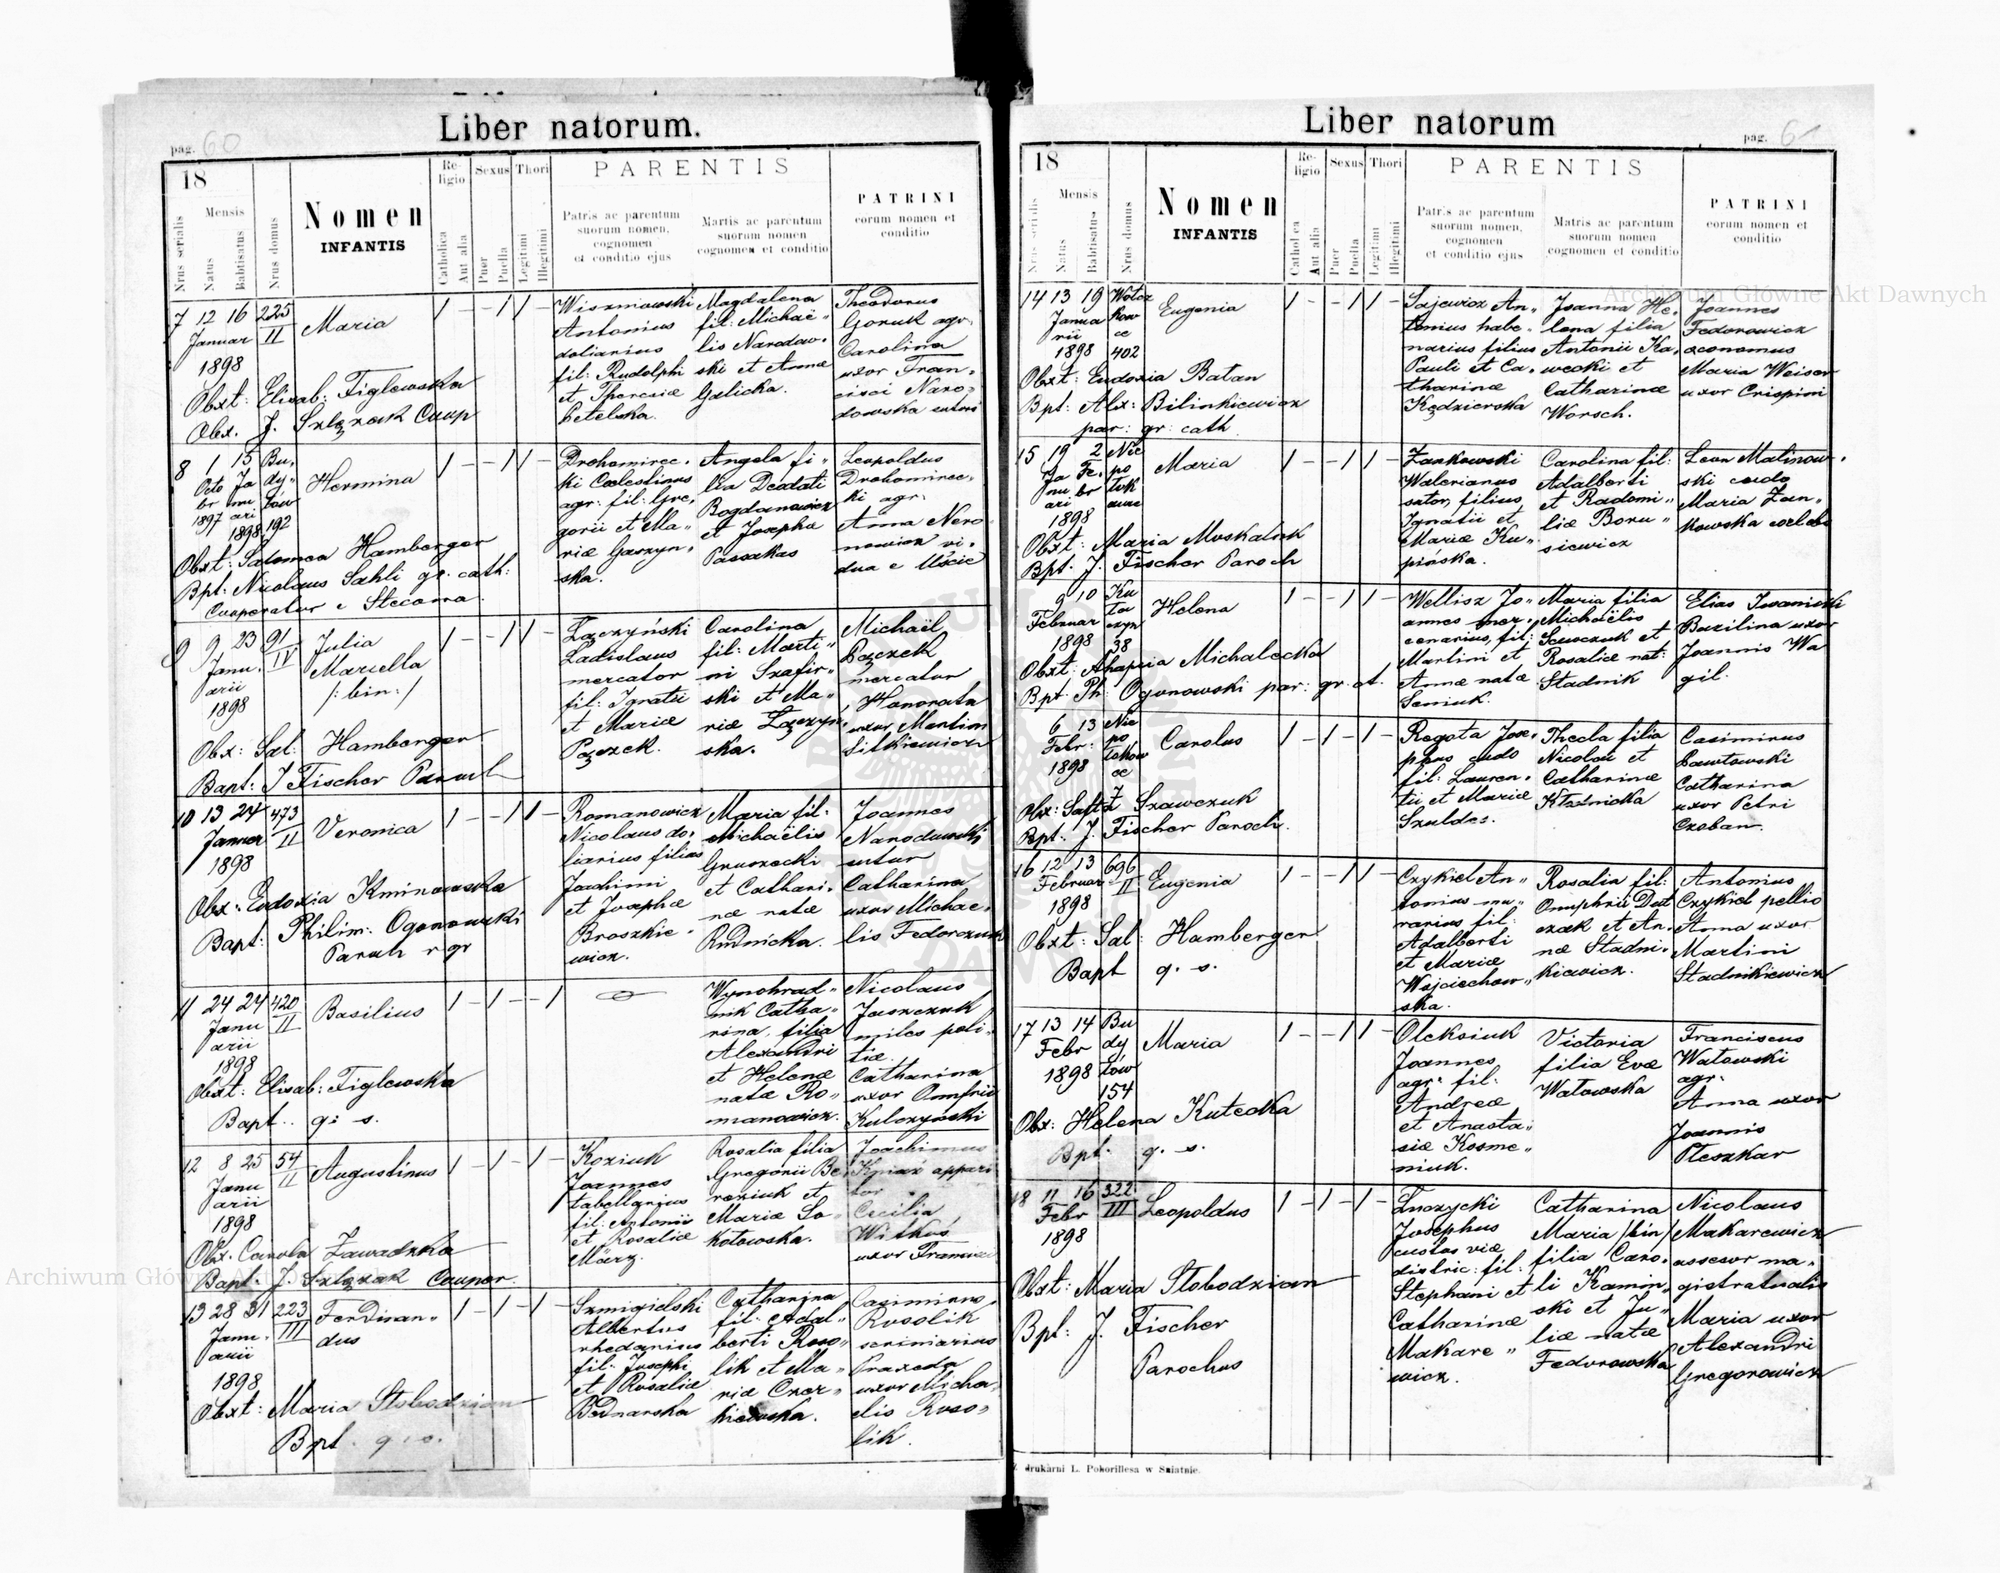 Liber natorum.
pag. 60
18
Nrus serialis
Mensis
Natus
Babtisatus
Nrus domus
Nomen
INFANTIS
Re-
ligio
Catholica
Aut alia
Sexus
Puer
Puella
Thori
Legitimi
Illegitimi
PARENTIS
Patris ac parentum
suorum nomen,
cognomen
et conditio ejus
Martis ac parentum
suorum nomen
cognomen et conditio
PATRINI
eorum nomen et
conditio
7 12 16 225
II
Januar
1898
Maria
1 - - 1 1 -
Obxt: Elisab: Figlewska
Obx. J. Szlęzak Coop
Wiszniowski
Antonius
doliarius
fil: Rudolphi
et Theresiæ
Petelska.
Magdalena
fil: Michaë-
lis Narodow-
ski et Annæ
Galicka.
Theodorus
Goruk agr.
Carolina
uxor Fran-
cisci Naro-
dowska sutori
8 1 15 Bu-
Octo Ja dy-
br nu łów
1897 ari
1898 192
Hermina
1 - - 1 1 -
Obxt: Salomea Hamberger
Bpt: Nicolaus Sahli gr. cath:
Cooperator e Stecowa
Drohomirec-
ki Cœlestinus
agr: fil: Gre-
gorii et Ma-
riæ Gaszyn-
ska.
Angela fi-
lia Deodati
Bogdanowicz
et Josepha
Passakas
Leopoldus
Drohomirec-
ki agr.
Anna Nero
nowicz vi-
dua e Uście
9 9 23 91
IV
Janu-
arii
1898
Julia
Mariella
/: bin :/
1 - - 1 1 -
Obx: Sal: Hamberger
Bapt: J Fischer Paroch
Łączyński
Ladislaus
mercator
fil: Ignatii
et Mariæ
Pączek.
Carolina
fil: Marti-
ni Szafir-
ski et Ma-
riæ Łączyn-
ska.
Michaël
Pączek
mercator
Honorata
uxor Martini
Sitkiewicz
10 13 24 473
II
Januar
1898
Veronica
1 - - 1 1 -
Obx: Eudoxia Kminowska
Bapt: Philim: Ogonowski
Paroch r gr
Romanowicz
Nicolaus do-
liarius filius
Joachimi
et Josephæ
Broszkie-
wicz.
Maria fil:
Michaëlis
Gruszecki
et Cathari-
næ natæ
Rudnicka.
Joannes
Narodowski
sutor
Catharina
uxor Michae-
lis Fedorczuk
11 24 24 420
II
Janu
arii
1898
Basilius
1 - 1 - - 1
Obxt: Elisab: Figlewska
Bapt.. q: s.
Wynohrad-
nik Catha-
rina, filia
Alexandri
et Helenæ
natæ Ro-
manowicz.
Nicolaus
Juszczuk
miles poli-
tiæ.
Catharina
uxor Onufrii
Kulczyński
12 8 25 54
II
Janu
arii
1898
Augustinus
1 - 1 - 1 -
Obx. Carola Zawadzka
Bapt: J. Szlęzak Cooper.
Koziuk
Joannes
tabellarius
fil: Antonii
et Rosaliæ
März.
Rosalia filia
Gregorii Be-
reziuk et
Mariæ So-
kołowska.
Joachimus
Kniaź appari
tor
Cecilia
Witkoś
uxor Francisci
13 28 31 223
III
Janu-
arii
1898
Ferdinan-
dus
1 - 1 - 1 -
Obxt: Maria Słobodzian
Bpt. q. s.
Szmigielski
Albertus
rhedarius
fil: Josephi
et Rosaliæ
Bednarska
Catharina
fil: Adal-
berti Roso-
lik et Ma-
riæ Czer-
kiewska.
Casimirus
Rosolik
scriniarius
Praxeda
uxor Micha-
elis Roso-
lik.
Liber natorum
pag. 61
18
Nrus serialis
Mensis
Natus
Babtisatus
Nrus domus
Nomen
INFANTIS
Re-
ligio
Catholica
Aut alia
Sexus
Puer
Puella
Thori
Legitimi
Illegitimi
PARENTIS
Patris ac parentum
suorum nomen,
cognomen
et conditio ejus
Matris ac parentum
suorum nomen
cognomen et conditio
PATRINI
eorum nomen et
conditio
14 13 19 Wołcz
Janua kow
rii ce
1898 402
Eugenia
1 - - 1 1 -
Obxt: Eudoxia Batan
Bpt: Alx: Bilinkiewicz
par: gr: cath
Sajewicz An-
tonius habe-
narius filius
Pauli et Ca-
tharinæ
Kędzierska
Joanna He-
lena filia
Antonii Ka-
wecki et
Catharinæ
Worsch.
Joannes
Fedorowicz
œconomus
Maria Weiser
uxor Crispini
15 19 2 Nie
Ja Fe- po
nu br łok
ari auce
1898
Maria
1 - - 1 1 -
Obxt: Maria Moskaluk
Bpt. J. Fischer Paroch
Zankowski
Walerianus
sutor, filius
Ignatii et
Mariæ Ku-
pińska.
Carolina fil:
Adalberti
et Radomi-
liæ Boru-
siewicz
Leon Malinow-
ski cudo
Maria Zan-
kowska cœlebs
9 10 Ku
Februar ław
czyn
1898 38
Helena
1 - - 1 1 -
Obxt: Ahapia Michalecka
Bpt Ph: Ogonowski par: gr. ct.
Wellisz Jo-
annes mer-
cenarius, fil:
Martini et
Annæ natæ
Seniuk.
Maria filia
Michaëlis
Sawczuk et
Rosaliæ nat:
Stadnik
Elias Iwanicki
Bazilina uxor
Joannis Wa
gil.
6 13 Nie
Febr: po
1898 tokow
ce
7
Carolus
1 - 1 - 1 -
Obx: Safta Szawczuk
Bpt. J. Fischer Paroch.
Rogota Jose-
phus cudo
fil: Lauren-
tii et Mariæ
Szuldes.
Thecla filia
Nicolai et
Catharinæ
Kładnicka
Casimirus
Pawłowski
Catharina
uxor Petri
Czoban.
16 12 13 696
II
Februar
1898
Eugenia
1 - - 1 1 -
Obxt: Sal: Hamberger
Bapt q. s.
Czykiel An-
tonius mu-
rarius fil:
Adalberti
et Mariæ
Wojciechow-
ska.
Rosalia fil:
Onuphrii Dut
czak et An-
næ Stadni-
kiewicz.
Antonius
Czykiel pellio
Anna uxor
Martini
Stadnikiewicz
17 13 14 Bu
Febr dy
łów
1898
154
Maria
1 - - 1 1 -
Obx: Helena Kutecka
Bpt. q. s.
Oleksiuk
Joannes
agr. fil:
Andreæ
et Anasta-
siæ Kosme-
niuk.
Victoria
filia Evæ
Watowska
Franciscus
Watowski
agr.
Anna uxor
Joannis
Pleszkar
18 11 16 322
III
Febr
1898
Leopoldus
1 - 1 - 1 -
Obxt: Maria Słobodzian
Bpt: J. Fischer
Parochus
Łuczycki
Josephus
custos viæ
distric: fil:
Stephani et
Catharinæ
Makare-
wicz.
Catharina
Maria /bin/
filia Caro-
li Kamin-
ski et Ju-
liæ natæ
Fedorowska
Nicolaus
Makarewicz
assesor ma-
gistratualis
Maria uxor
Alexandri
Gregorowicz
Z drukàrni L. Pokorillesa w Sniatnie.
Archiwum Główne Akt Dawnych
Archiwum Główne Akt Dawnych